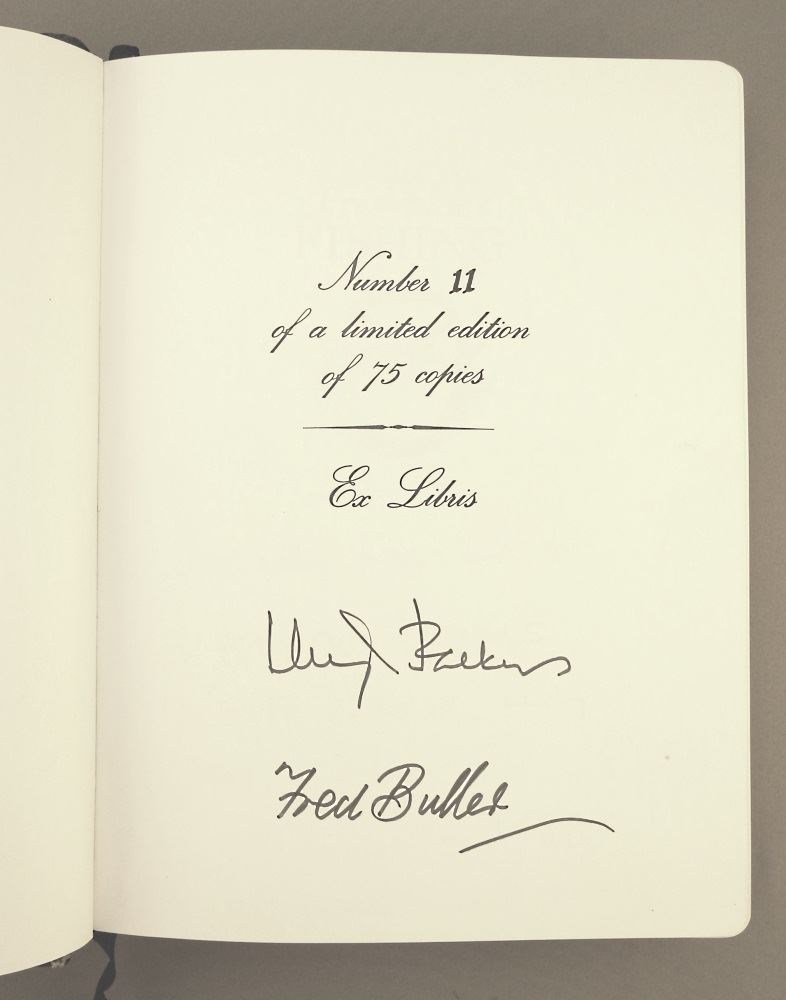 Number 11
of a limited edition
of 75 copies
Ex Libris
Fred Buller